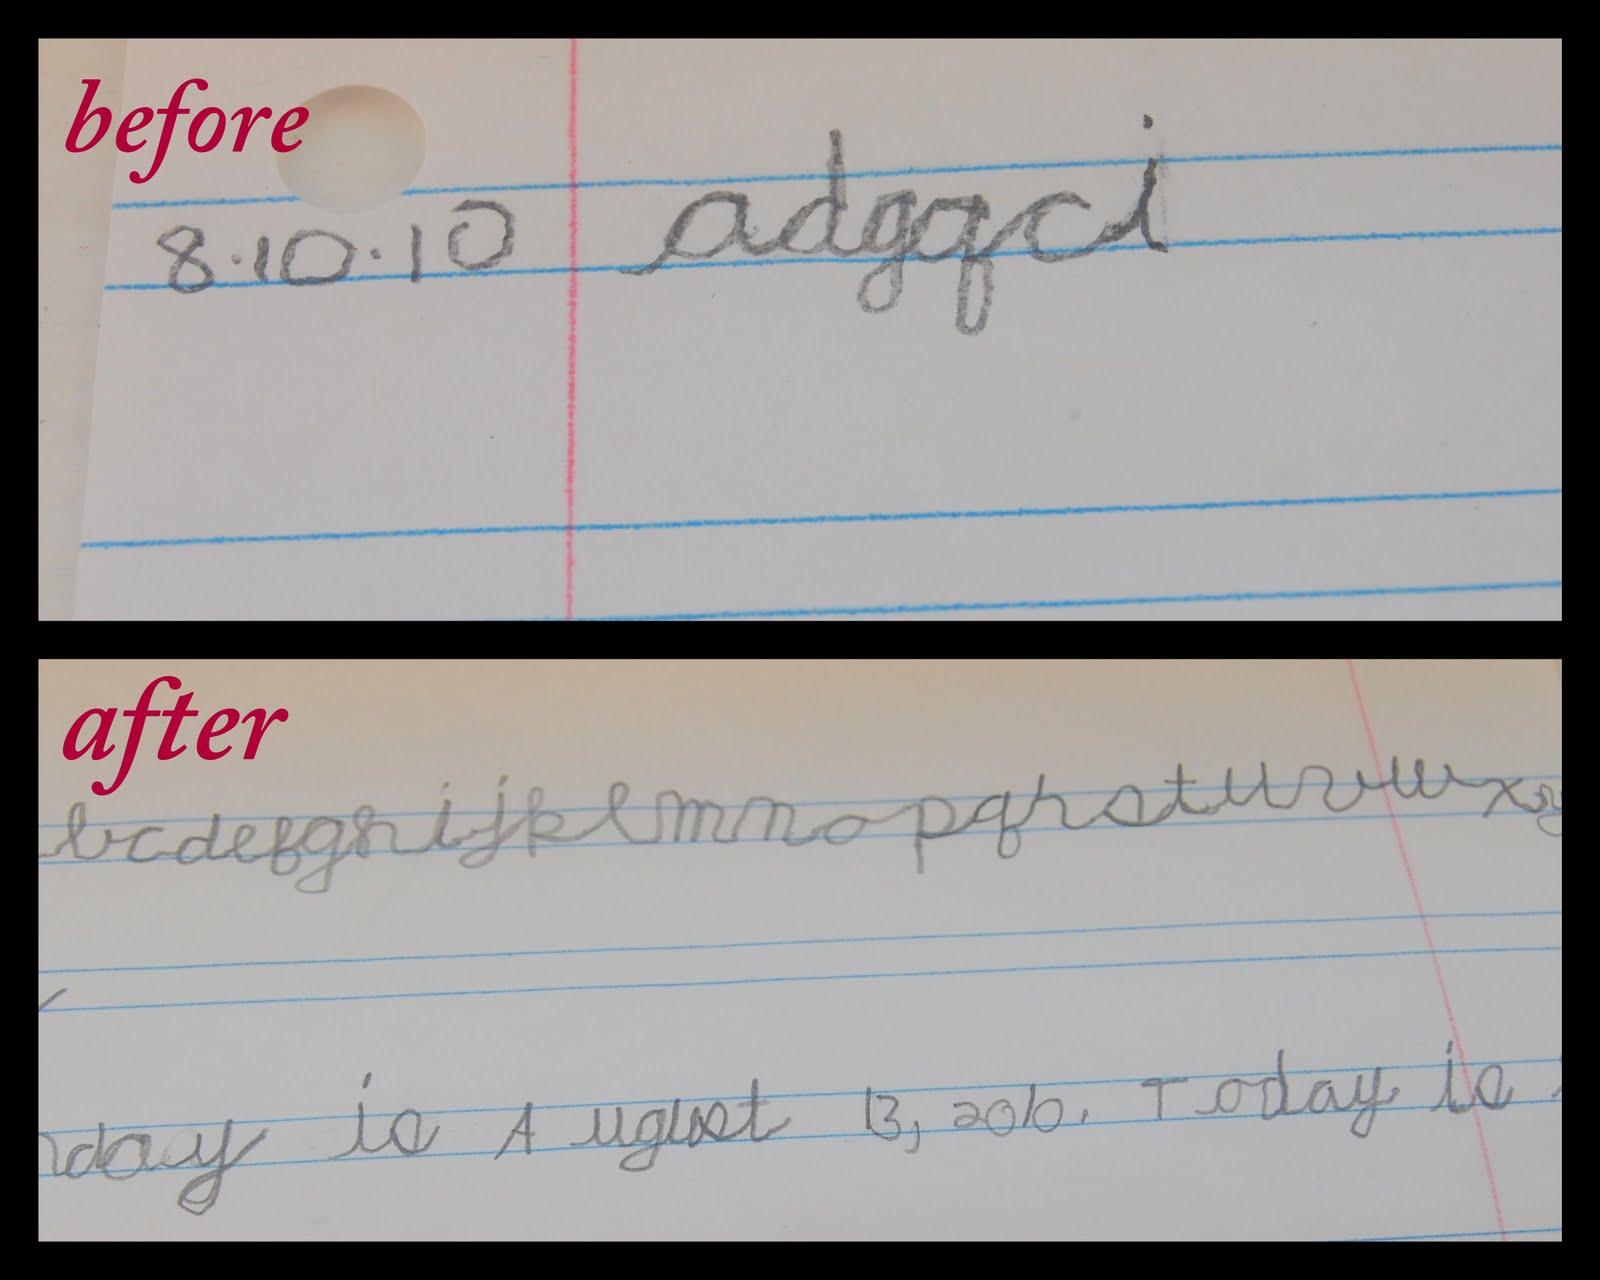 before
8.10.10 adgqci
after
bcdefghijklmnopqrstuvwxy
day is August 13, 2010. Today is